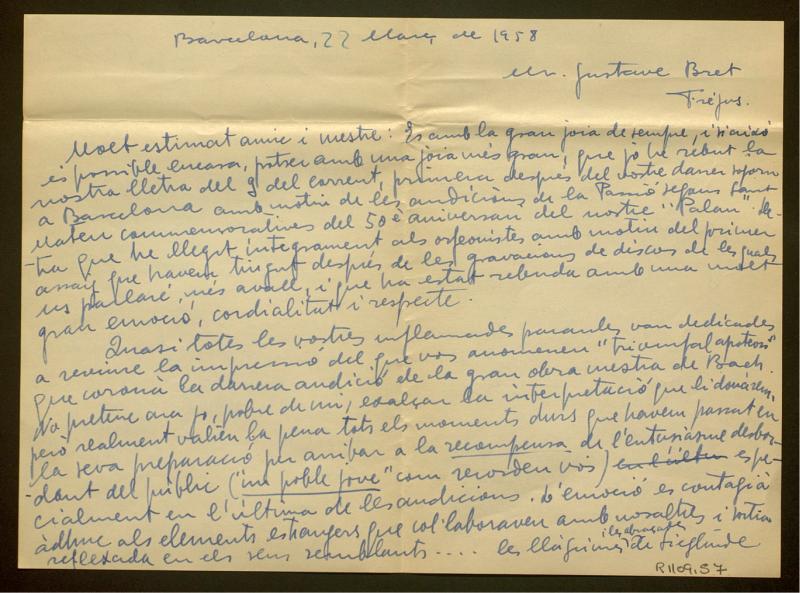 Barcelona, 22 Març de 1958
Mr. Gustave Bret
Fréjus.
Molt estimat amic i mestre: És amb la gran joia de sempre, i si això
és possible encara, potser amb una joia més gran, que jo he rebut la
vostra lletra del 9 del corrent, primera després del vostre darrer sojorn
a Barcelona amb motiu de les audicions de la Passió segons Sant
Mateu commemoratives del 50è aniversari del nostre "Palau". Lle-
tra que he llegit íntegrament als orfeonistes amb motiu del primer
assaig que havem tingut després de les gravacions de discos de les quals
us parlaré, més avall, i que ha estat rebuda amb una molt
gran emoció, cordialitat i respecte.
Quasi totes les vostres inflamades paraules van dedicades
a reviure la impressió del que vos anomeneu "triomfal apoteosi"
que coronà la darrera audició de la gran obra mestra de Bach.
No pretenc ara jo, pobre de mi, exalçar la interpretació que li donàrem,
però realment valien la pena tots els moments durs que havem passat en
la seva preparació per arribar a la recompensa de l'entusiasme desbor-
dant del públic ("un poble jove" com recorden vós) en l'última espe-
cialment en l'última de les audicions. L'emoció es contagià
àdhuc als elements estrangers que col·laboraven amb nosaltres i sortia
reflexada en els seus semblants.... les llàgrimes i les abraçades de Sieglinde
R1109.57